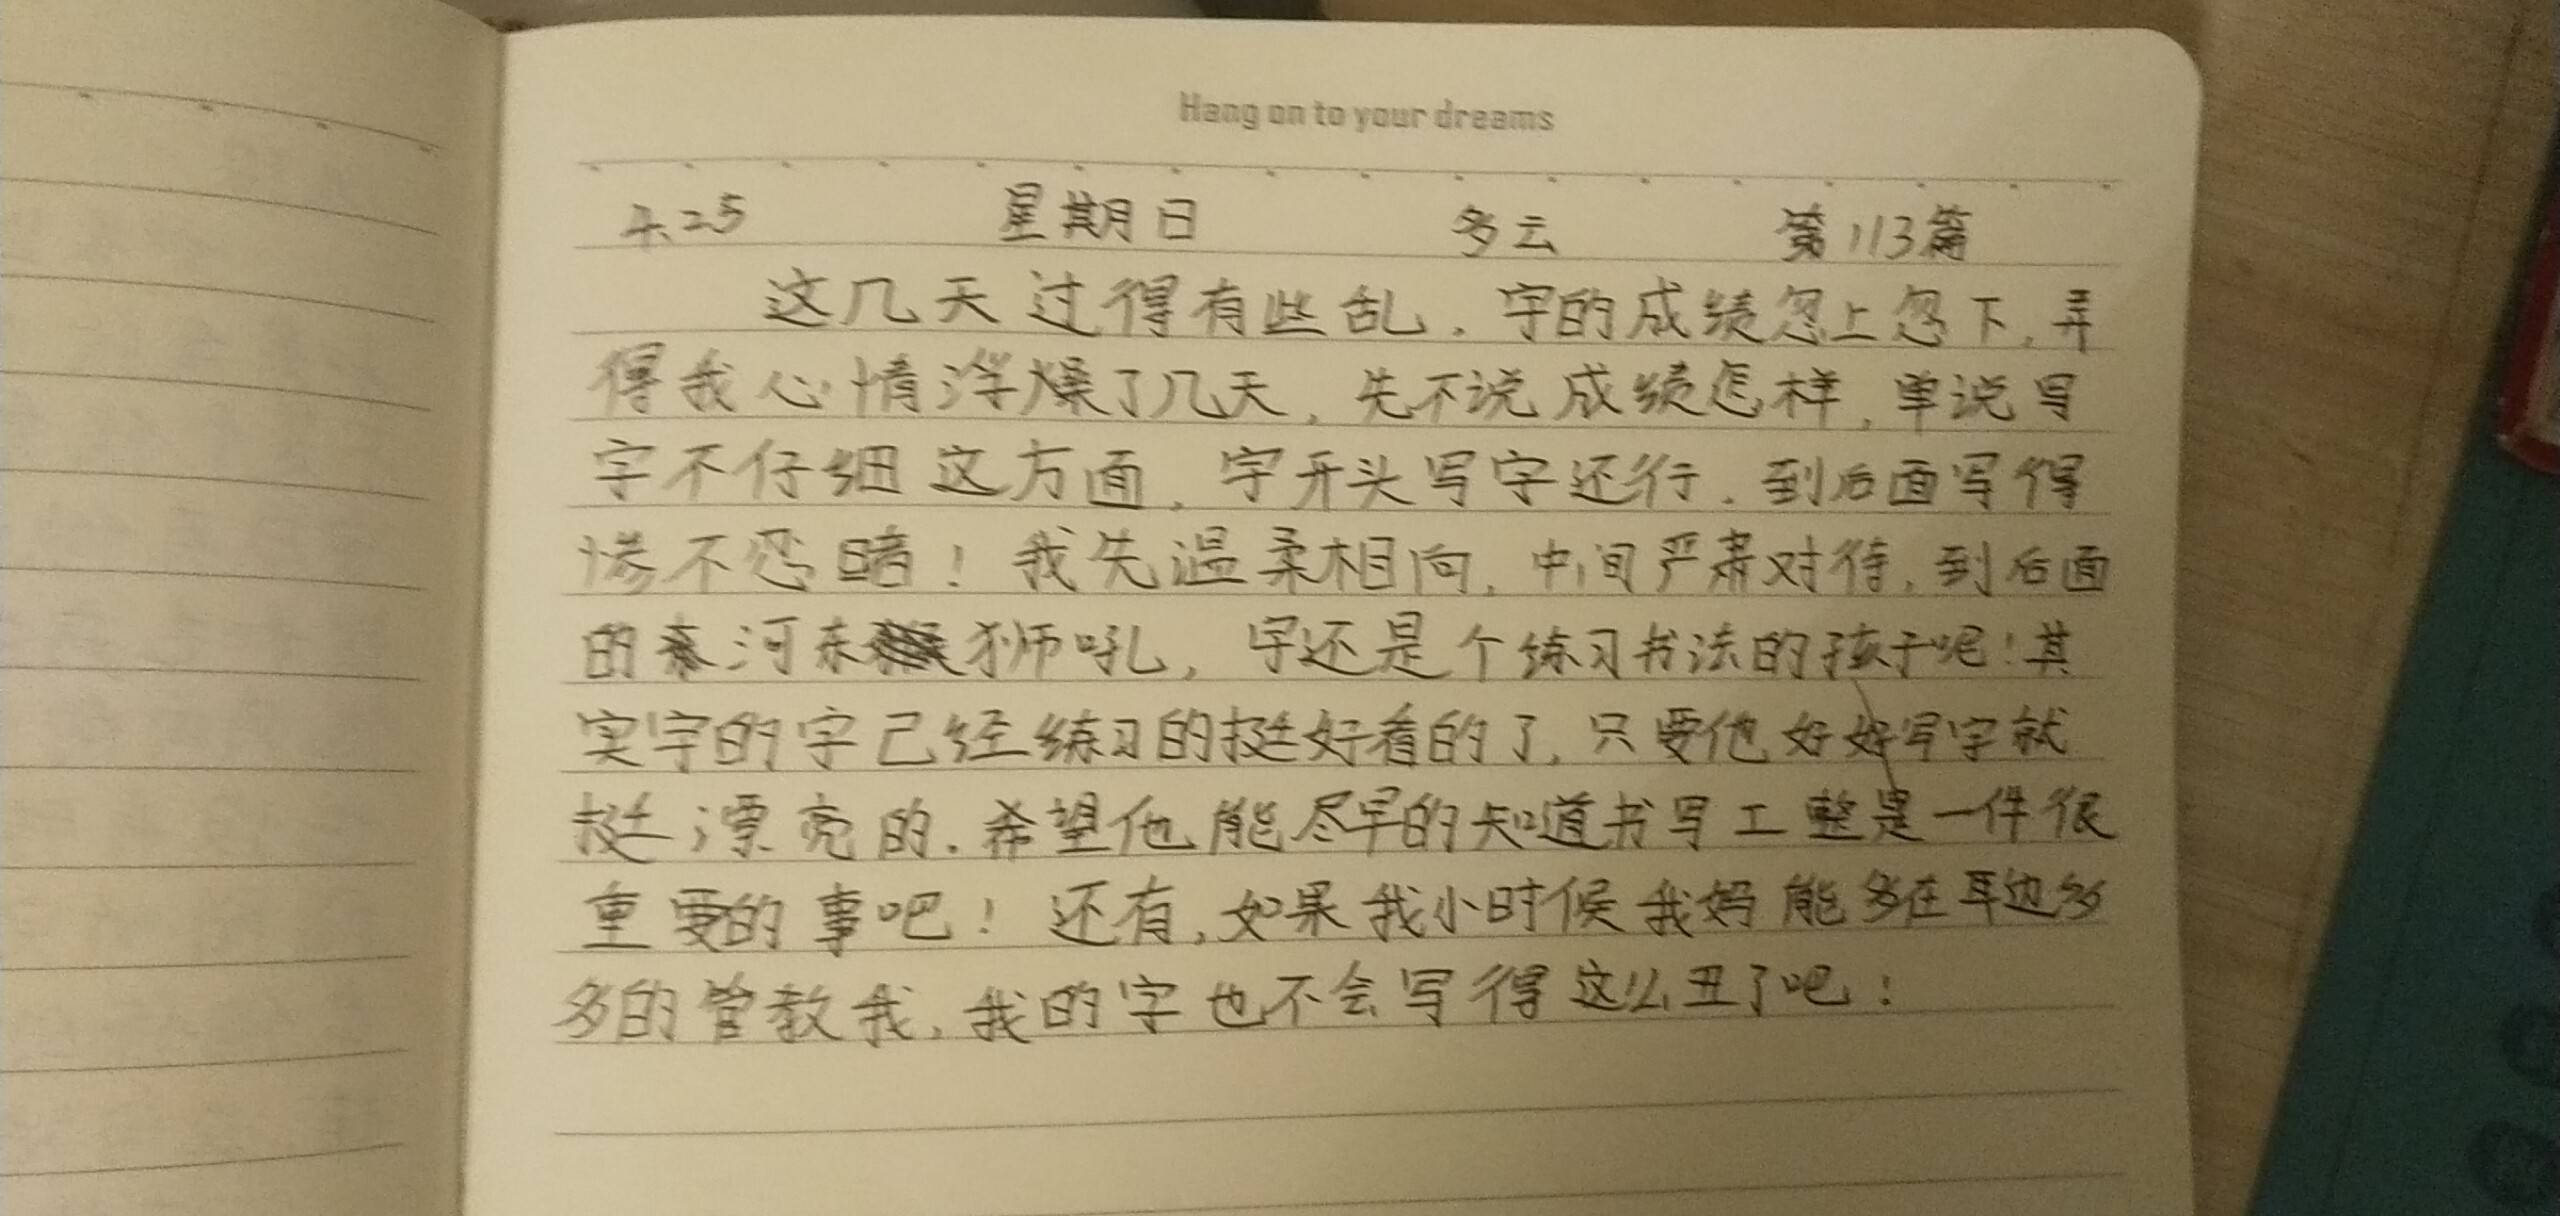 Hang on to your dreams
4.25 星期日 多云 第113篇
这几天过得有些乱，宇的成绩忽上忽下，弄
得我心情浮燥了几天，先不说成绩怎样，单说写
字不仔细这方面，宇开头写字还行，到后面写得
惨不忍睹！我先温柔相向，中间严肃对待，到后面
的河东狮吼，宇还是个练习书法的孩子呢！其
实宇的字已经练习的挺好看的了，只要他好好写字就
挺漂亮的．希望他能尽早的知道书写工整是一件很
重要的事吧！还有，如果我小时候我妈能多在耳边多
多的管教我，我的字也不会写得这么丑了吧！